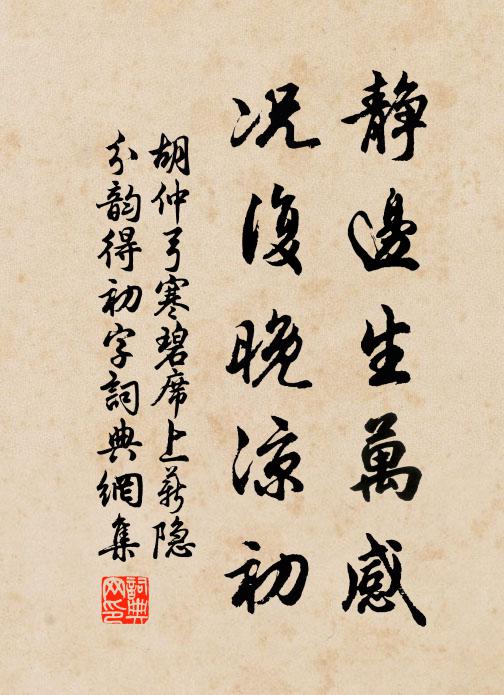 靜邊生萬感
況復晚涼初
胡仲弓寒碧席上薪隐
分韵得初字詞典網集
詞典网印